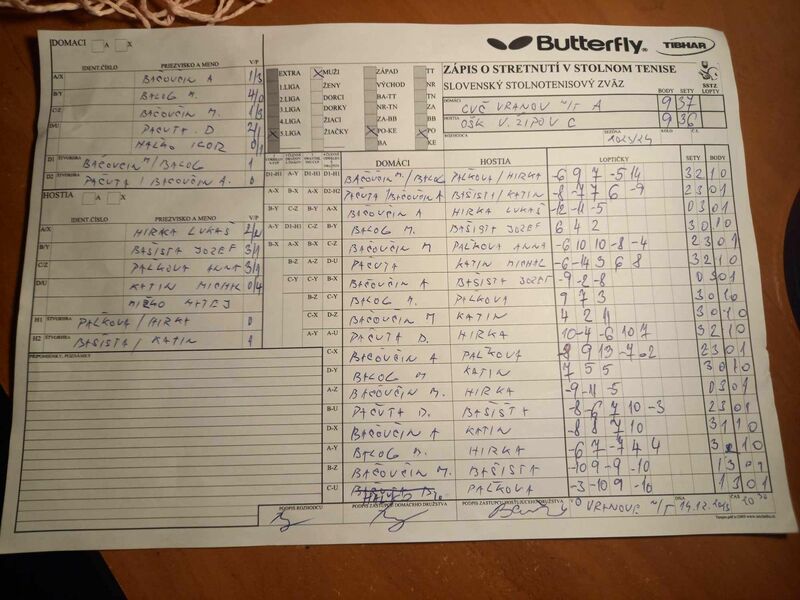 DOMÁCI A X
IDENT.ČÍSLO PRIEZVISKO A MENO V/P
A/X BAČOVČIN A 1/3
B/Y BALOG M. 4/0
C/Z BAČOVČIN M. 1/3
D/U PAČUTA D 2/1
HAĽKO IGOR 0/1
D1 ŠTVORHRA BAČOVČIN M / BALOG 1
D2 ŠTVORHRA PAČUTA / BAČOVČIN A. 0
HOSTIA A X
IDENT.ČÍSLO PRIEZVISKO A MENO V/P
A/X HIRKA LUKÁŠ 2/2
B/Y BAŠISTA JOZEF 3/1
C/Z PALKOVA ANNA 3/1
D/U KATIN MICHAL 0/4
MIŽKO MATEJ
H1 ŠTVORHRA PALKOVA / HIRKA 0
H2 ŠTVORHRA BAŠISTA / KATIN 1
PRIPOMIENKY, POZNÁMKY
Butterfly TIBHAR
EXTRA X MUŽI ZÁPAD TT
1.LIGA ŽENY VÝCHOD NR
2.LIGA DORCI BA-TT TN
3.LIGA DORKY NR-TN ZA
4.LIGA ŽIACI ZA-BB BB
5.LIGA ŽIAČKY PO-KE PO
BA KE
ZÁPIS O STRETNUTÍ V STOLNOM TENISE
SLOVENSKÝ STOLNOTENISOVÝ ZVÄZ
SSTZ
BODY SETY LOPTY
DOMÁCI CVČ VRANOV N/T A 9 37
HOSTIA OŠK V. ŽIPOV C 9 36
ROZHODCA SEZÓNA 2023/24 KOLO Č.
DOMÁCI HOSTIA LOPTIČKY SETY BODY
D1-H1 A-Y D1-H1 D1-H1 BAČOVČIN M. / BALOG PALKOVA / HIRKA -6 9 7 -5 14 3 2 1 0
A-X B-X A-X D2-H2 PAČUTA / BAČOVČIN A BAŠISTA / KATIN -8 -7 7 6 -9 2 3 0 1
B-Y C-Z B-Y A-X BAČOVČIN A HIRKA LUKÁŠ -12 -11 -5 0 3 0 1
A-Y D1-H1 C-Z B-Y BALOG M. BAŠISTA JOZEF 6 4 2 3 0 1 0
B-X A-X B-X C-Z BAČOVČIN M. PALKOVA ANNA -6 10 10 -8 -4 2 3 0 1
B-Z A-Z D-U PAČUTA KATIN MICHAL -6 -14 3 6 8 3 2 1 0
C-Y C-Y B-X BAČOVČIN A BAŠISTA JOZEF -9 -2 -8 0 3 0 1
B-Z C-Y BALOG M. PALKOVA 9 7 3 3 0 1 0
C-X D-Z BAČOVČIN M KATIN 4 2 4 3 0 1 0
A-Y A-U PAČUTA D. HIRKA 10 -4 -6 10 7 3 2 1 0
C-X BAČOVČIN A PALKOVA -8 9 13 -7 -2 2 3 0 1
D-Y BALOG M KATIN 7 5 5 3 0 1 0
A-Z BAČOVČIN M. HIRKA -9 -11 -5 0 3 0 1
B-U PAČUTA D. BAŠISTA -8 -6 7 10 -3 2 3 0 1
D-X BAČOVČIN A KATIN -8 8 7 10 3 1 1 0
A-Y BALOG M. HIRKA -6 7 -7 4 4 3 2 1 0
B-Z BAČOVČIN M. BAŠISTA -10 9 -9 -10 1 3 0 1
C-U PALKOVA -3 -10 9 -10 1 3 0 1
PODPIS ROZHODCU PODPIS ZÁSTUPCU DOMÁCEHO DRUŽSTVA PODPIS ZÁSTUPCU HOSŤUJÚCEHO DRUŽSTVA V VRANOVE N/T DŇA 14.12.2023 ČAS 20 30